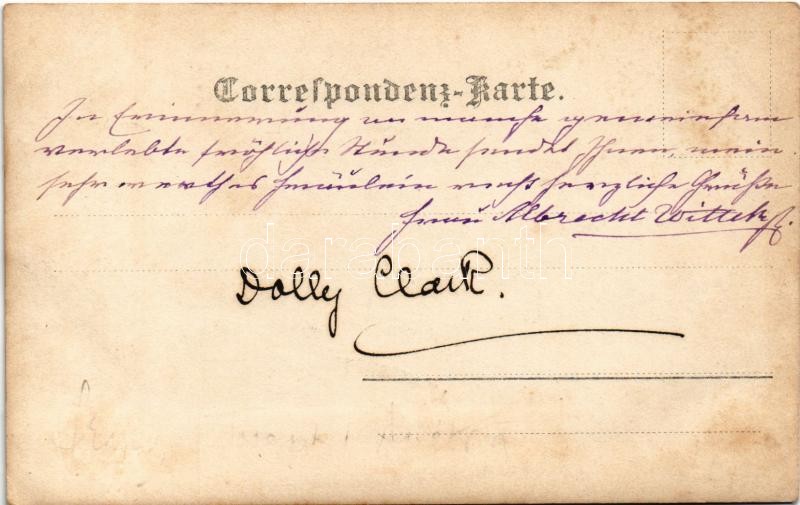 Correspondenz-Karte.
In Erinnerung an manche gemeinsam
verlebte fröhliche Stunde sendet Ihnen, mein
sehr werthes Fräulein recht herzliche Grüße
Frau Albrecht Wittek
darabanth
Dolly Clark.